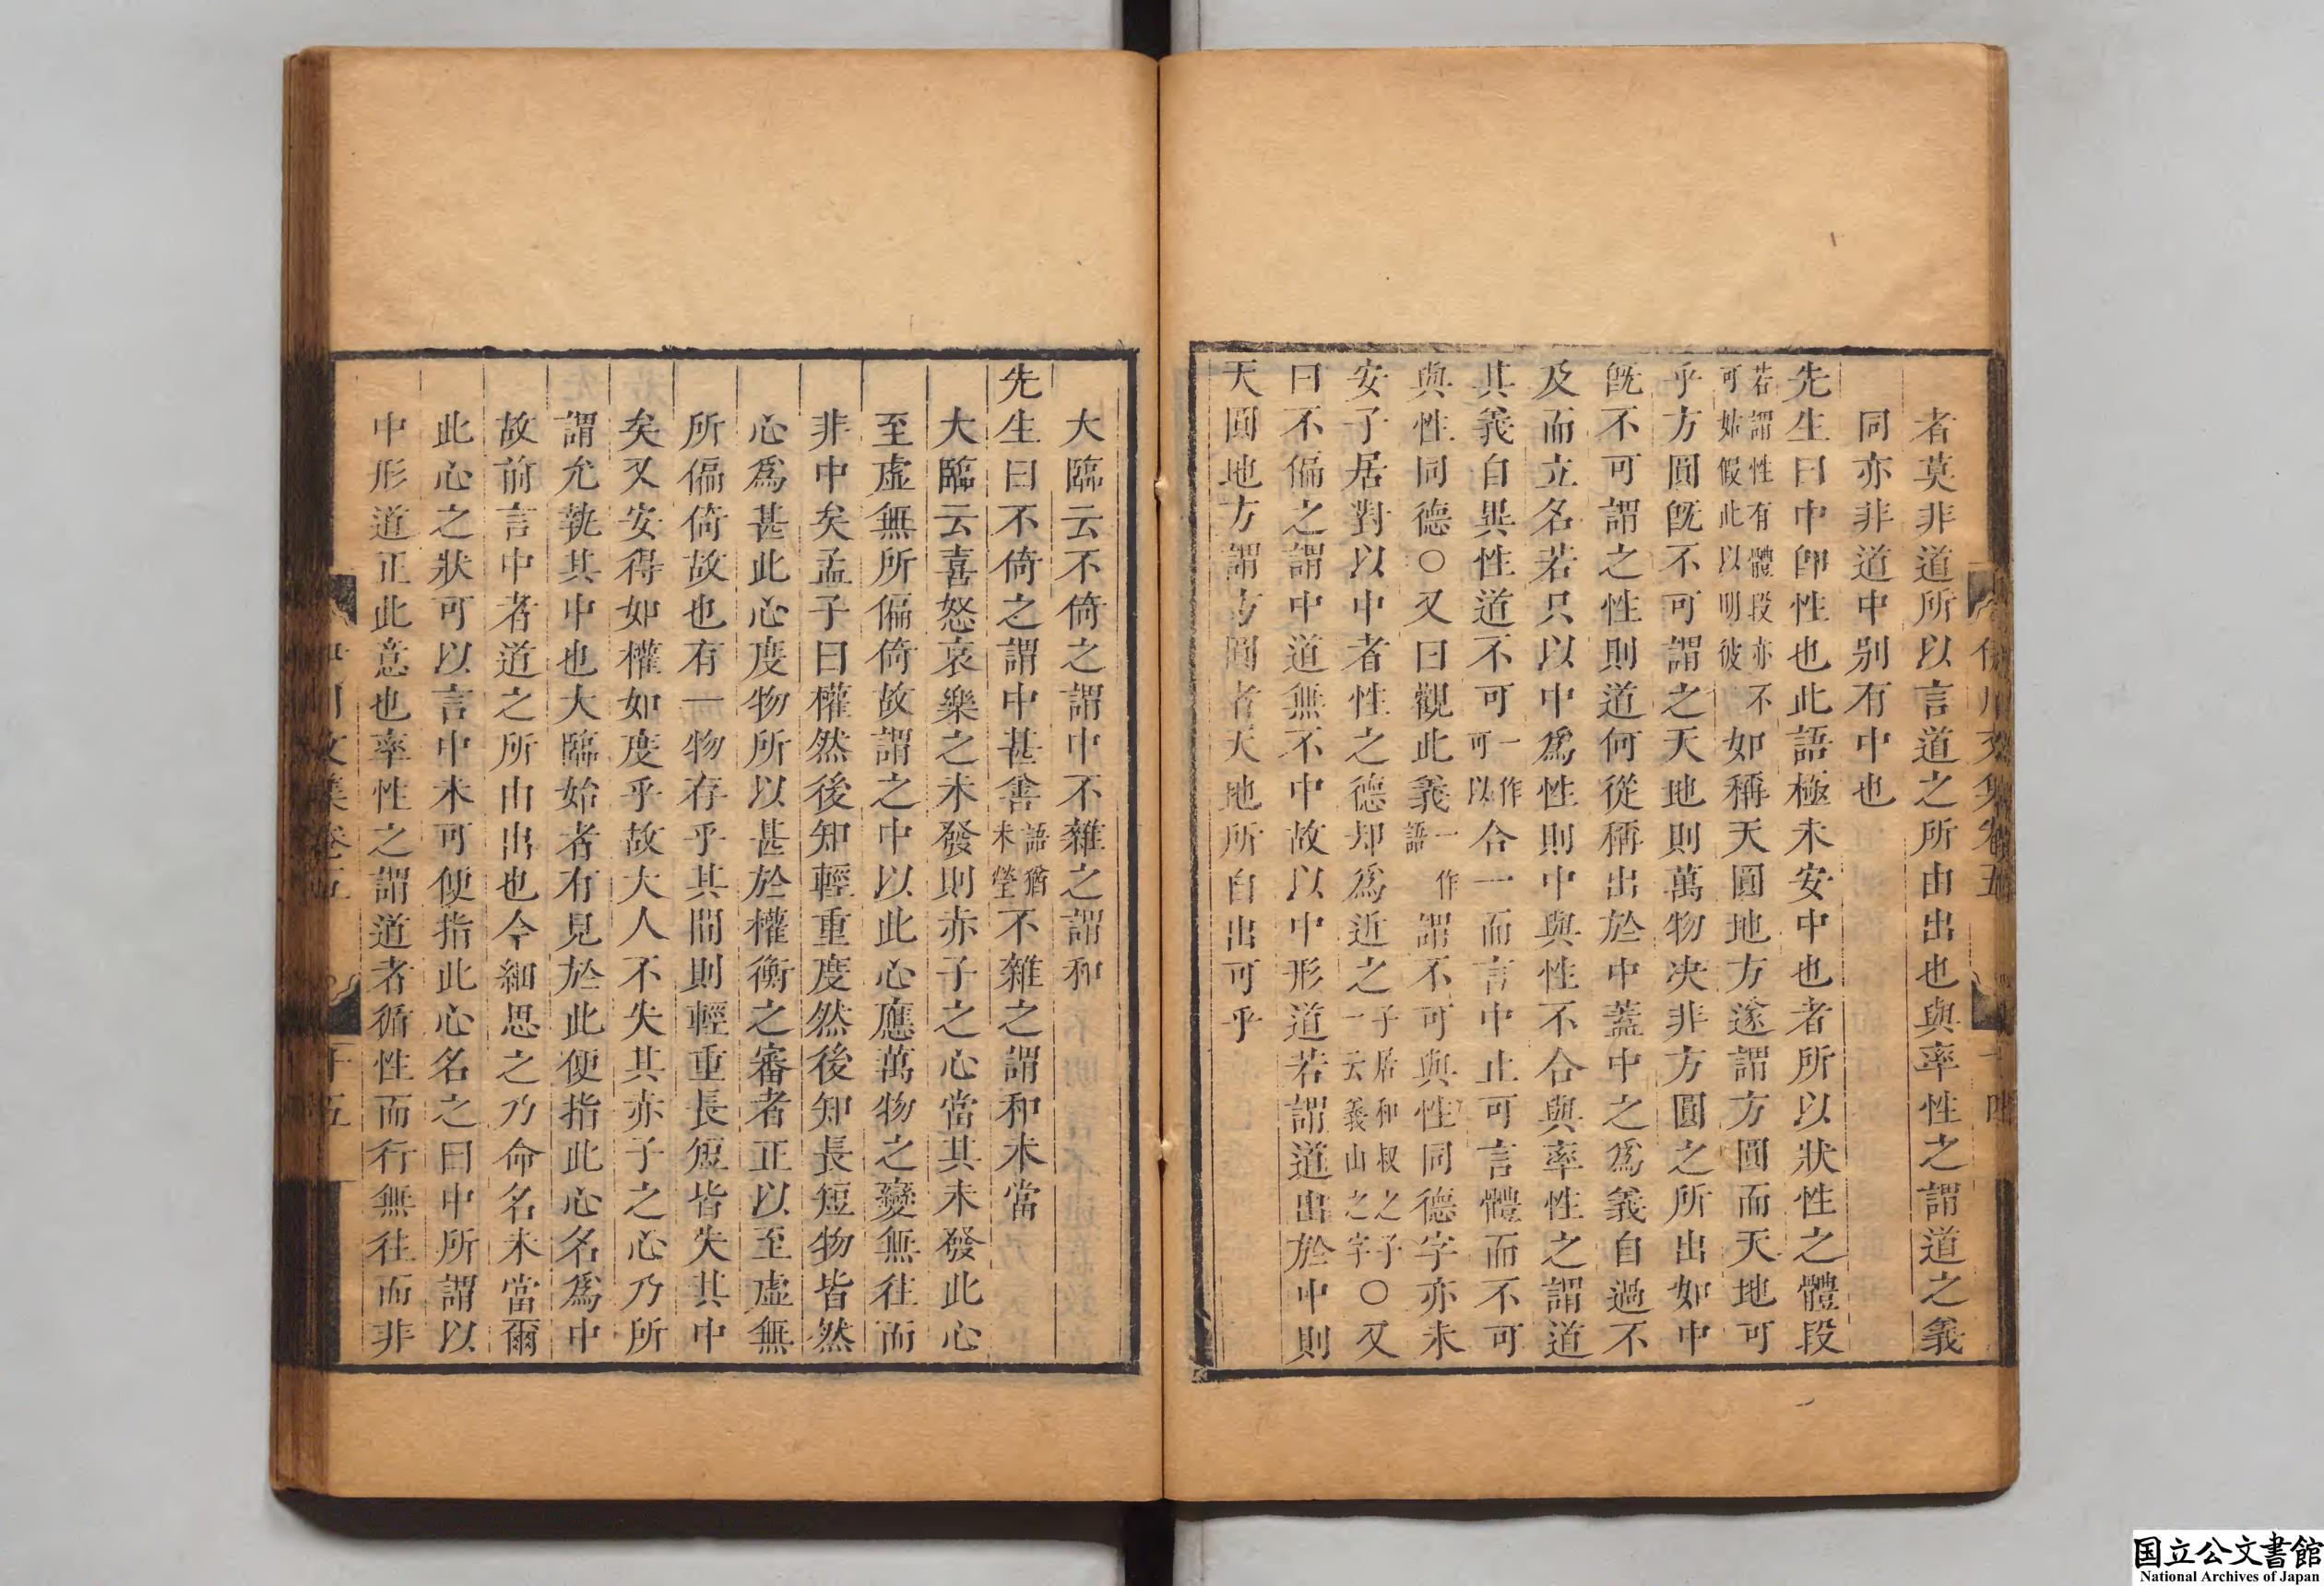 者莫非道所以言道之所由出也與率性之謂道之義
同亦非道中别有中也
先生曰中卽性也此語極未安中也者所以狀性之體段
若謂性有體段亦不可姑假此以明彼如稱天圓地方遂謂方圓而天地可
乎方圓旣不可謂之天地則萬物決非方圓之所出如中
旣不可謂之性則道何從稱出於中蓋中之爲義自過不
及而立名若只以中爲性則中與性不合與率性之謂道
其義自異性道不可一作可以合一而言中止可言體而不可
與性同德○又曰觀此義一作語謂不可與性同德字亦未
安子居對以中者性之德却爲近之子居和叔之子一云義山之字○又
曰不偏之謂中道無不中故以中形道若謂道出於中則
天圓地方謂方圓者天地所自出可乎
伊川文集卷五
十四
大臨云不倚之謂中不雜之謂和
先生曰不倚之謂中甚善語猶未瑩不雜之謂和未當
大臨云喜怒哀樂之未發則赤子之心當其未發此心
至虛無所偏倚故謂之中以此心應萬物之變無往而
非中矣孟子曰權然後知輕重度然後知長短物皆然
心爲甚此心度物所以甚於權衡之審者正以至虛無
所偏倚故也有一物存乎其間則輕重長短皆失其中
矣又安得如權如度乎故大人不失其赤子之心乃所
謂允執其中也大臨始者有見於此便指此心名爲中
故前言中者道之所由出也今細思之乃命名未當爾
此心之狀可以言中未可便指此心名之曰中所謂以
中形道正此意也率性之謂道者循性而行無往而非
伊川文集卷五
十五
国立公文書館
National Archives of Japan